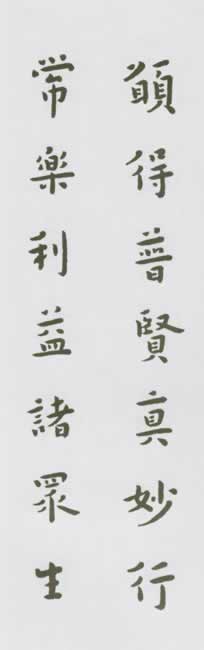 願得普賢真妙行
常樂利益諸眾生